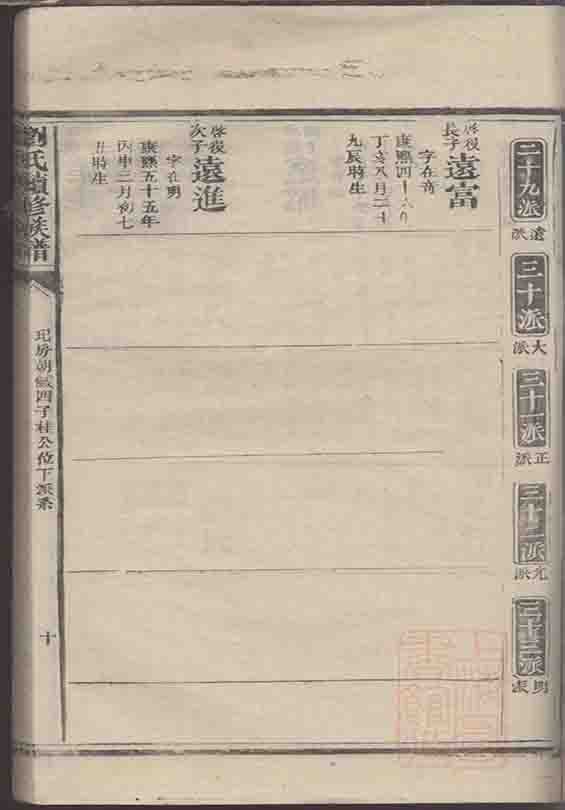 二十九派
遠派
三十派
大派
三十一派
正派
三十二派
元派
三十三派
明派
啓復長子
遠富
字在音
康熙四十六年
丁亥八月二十
九辰時生
啓復次子
遠進
字在明
康熙五十五年
丙申三月初七
日時生
劉氏續修族譜
玘房朝鉞四子桂公位下派系
十